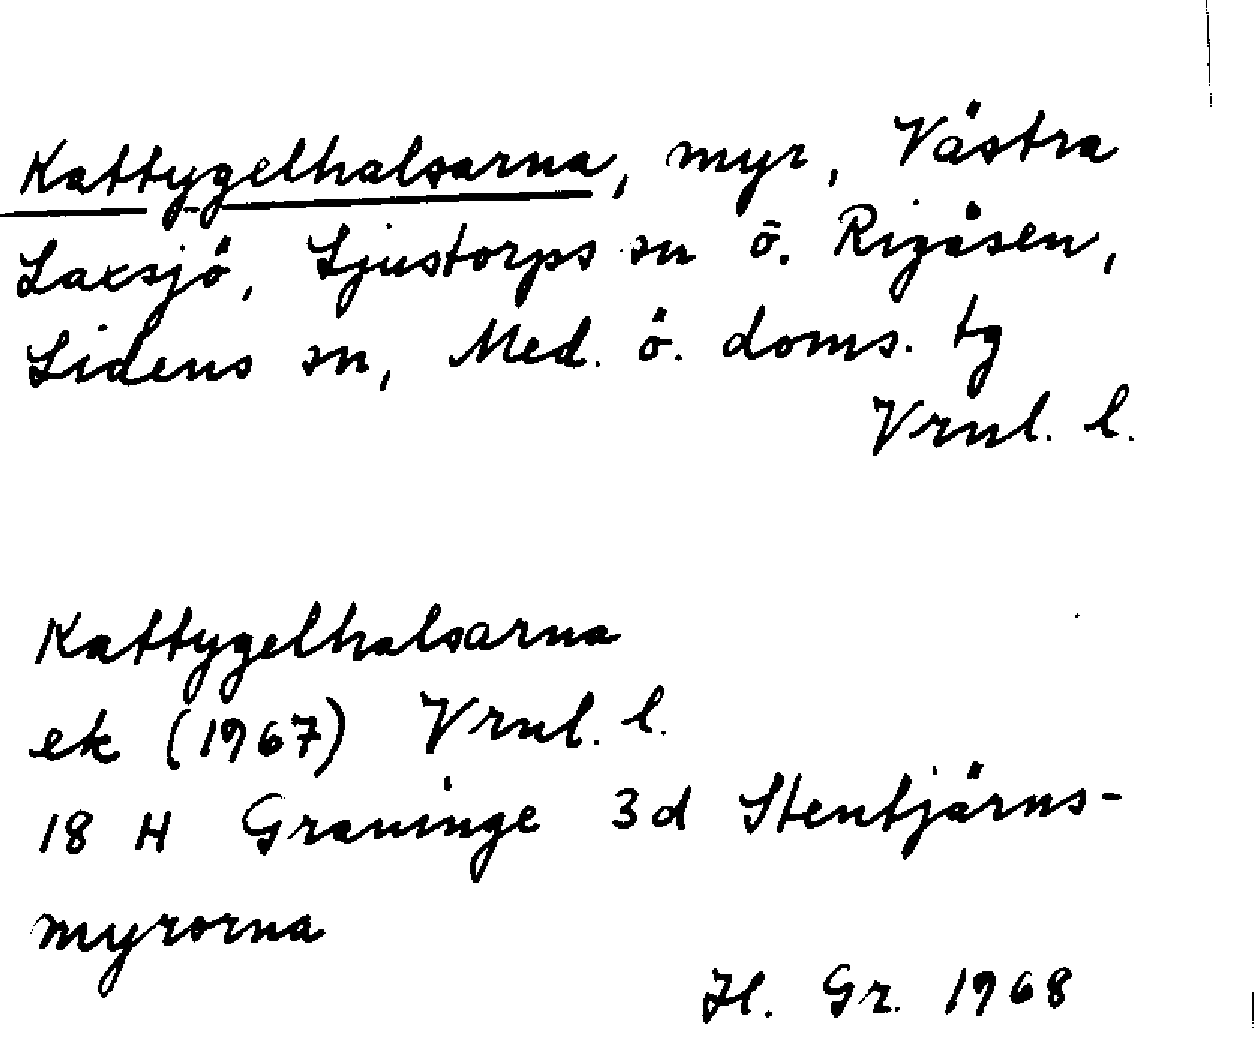 Kattygelhalsarna, myr, Västra
Laxsjö, Ljustorps sn o. Rigåsen,
Lidens sn, Med. ö. doms. tg
Vrnl. l.
Kattygelhalsarna
ek (1967) Vrnl. l.
18 H Graninge 3d Stentjärns-
myrorna
H. Gr. 1968